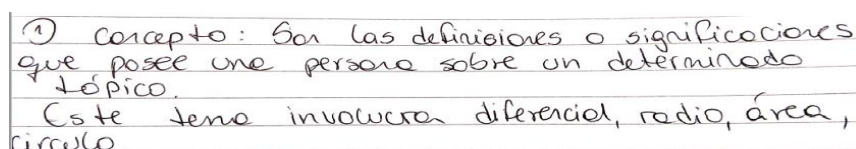 ① concepto: Son las definiciones o significaciones
que posee una persona sobre un determinado
tópico.
Este tema involucra diferencial, radio, área,
circulo